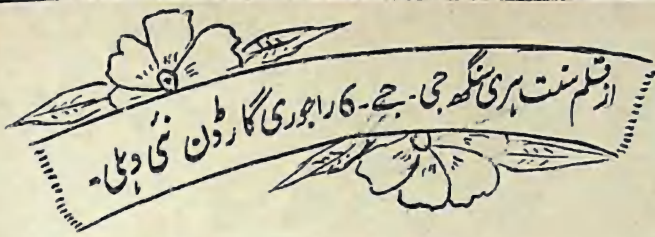 از قلم سنت ہری سنگھ جی۔ جے۔ 6 راجوری گارڈن نئی دہلی۔